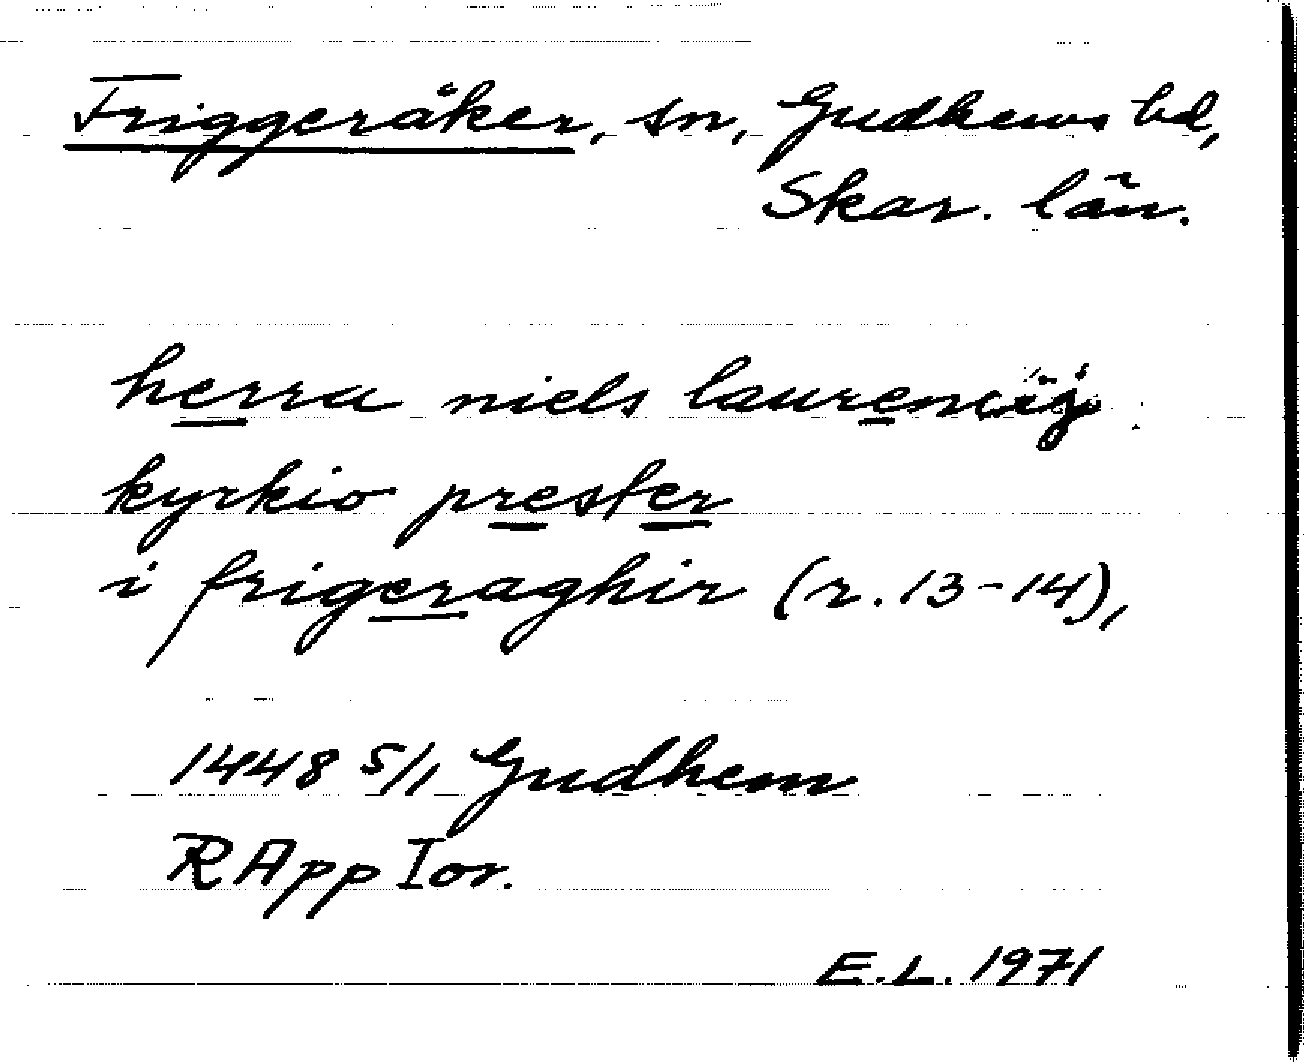 Friggeråker, sn, Gudhems hd,
Skar. län.
herra niels laurencij
kyrkio prester
i frigeraghir (r. 13-14),
1448 5/1 Gudhem
RApp I or.
E.L. 1971